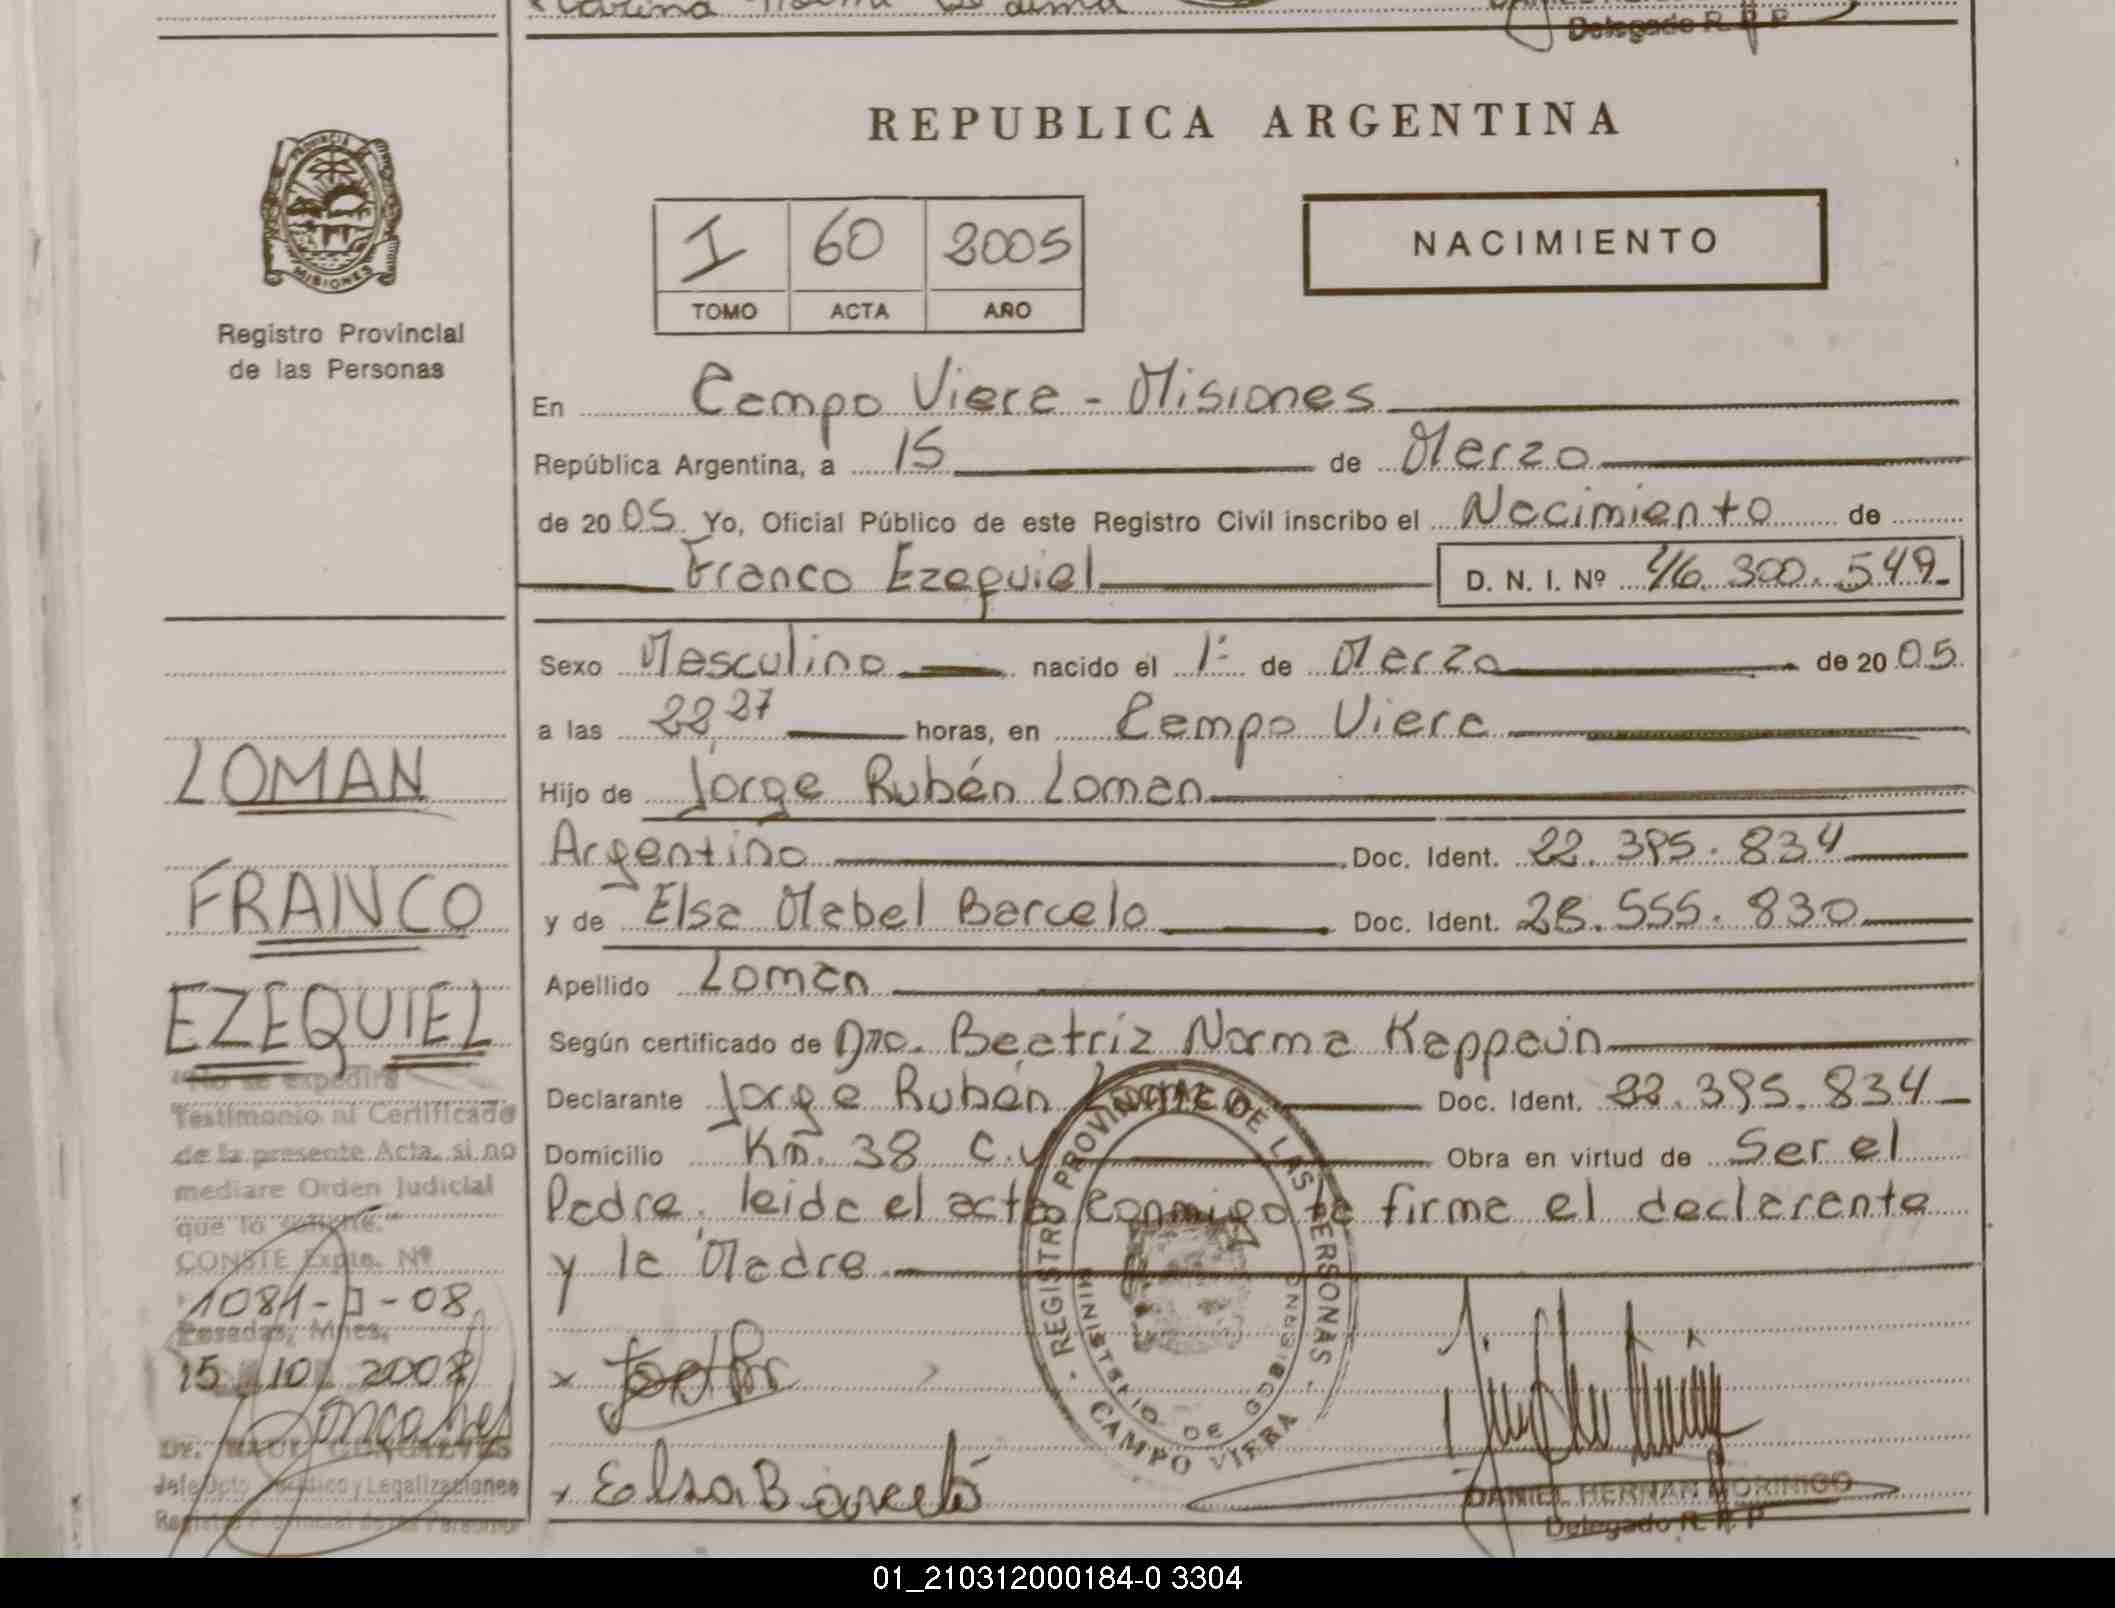 Delegado R. P. P.
PROVINCIA DE
MISIONES
Registro Provincial
de las Personas
REPUBLICA ARGENTINA
I 60 2005
TOMO ACTA AÑO
NACIMIENTO
En Campo Viera - Misiones
República Argentina, a 15 de Marzo
de 2005 Yo, Oficial Público de este Registro Civil inscribo el Nacimiento de
Franco Ezequiel D. N. I. Nº 46.300.549
Sexo Masculino nacido el 1º de Marzo de 2005
a las 22,27 horas, en Campo Viera
Hijo de Jorge Rubén Loman
Argentino Doc. Ident. 22.395.834
y de Elsa Mabel Barcelo Doc. Ident. 28.555.830
Apellido Loman
Según certificado de Dra. Beatriz Norma Kappaun
Declarante Jorge Rubén Doc. Ident. 22.395.834
Domicilio Km. 38 C.V Obra en virtud de Ser el
Padre. leida el acta conmigo la firma el declarante
y la Madre
LOMAN
FRANCO
EZEQUIEL
"No se expedirá
Testimonio ni Certificado
de la presente Acta, si no
mediare Orden Judicial
que lo solicite."
CONSTE Expte. Nº
1081-D-08
Posadas, Mnes.
15 10 2008
Goncalves
Dr. RAUL GONCALVES
Jefe Dpto Jurídico y Legalizaciones
Registro Provincial de las Personas
REGISTRO PROVINCIAL DE LAS PERSONAS
MINISTERIO DE GOBIERNO
CAMPO VIERA
x
x Elsa Barceló
DANIEL HERNAN MORINIGO
Delegado R. P. P.
01_210312000184-0 3304